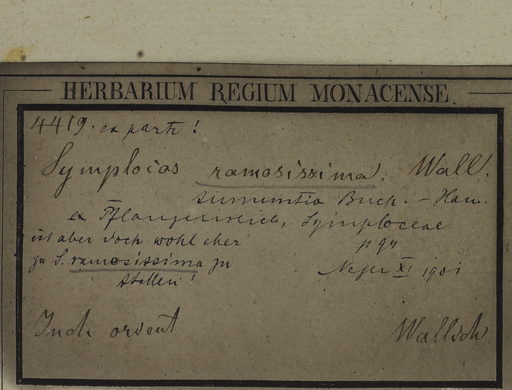 HERBARIUM REGIUM MONACENSE.
4419. ex parte!
Symplocos ramosissima. Wall.
sumuntia Buch. - Ham.
ex Pflanzenreich, Symploceae
ist aber doch wohl eher p 94
zu S. ramosissima zu XI 1901
stellen!
Ind. orient Wallich